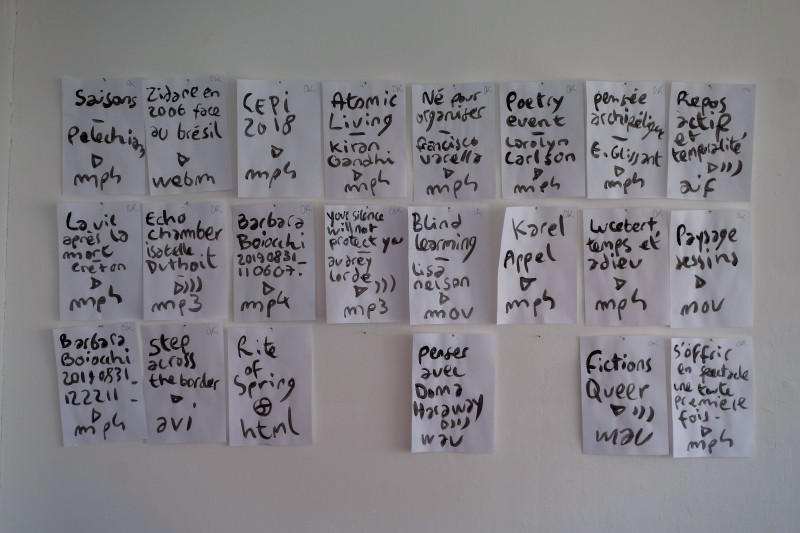 Saisons
—
Pelechian
▷
mp4
Zidane en
2006 face
au brésil
▷
webm
CEPI
2018
▷
mp4
OK
Atomic
Living
—
Kiran
Gandhi
▷
mp4
OK
Né pour
organiser
—
francisco
varella
▷
mp4
OK
Poetry
event
—
Carolyn
Carlson
▷
mp4
OK
pensée
archipélique
—
E. Glissant
▷
mp4
OK
Repos
actif
et
temporalité
▷)))
aif
La vie
après la
mort
▷
mp4
OK
Echo
chamber
isabelle
Duthoit
▷)))
mp3
OK
Barbara
Boiocchi
20190831_
110607.
▷
mp4
OK
your silence
will not
protect you
—
audrey
lorde
▷)))
mp3
Blind
learning
—
lisa
nelson
▷
mov
OK
Karel
Appel
▷
mp4
OK
temps et
adieu
▷
mp4
Paysage
▷
mov
OK
Barbara
Boiocchi
20190831_
122211_
▷
mp4
OK
Step
across
the border
▷
avi
Rite
of
Spring
html
penser
avec
Dona
Haraway
▷)))
wav
OK
Fictions
Queer
▷)))
wav
OK
s'offrir
en spectacle
une toute
première
fois_
▷
mp4